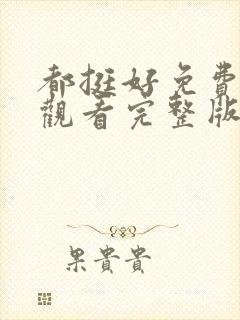 都挺好免費
觀看完整版
果貴貴